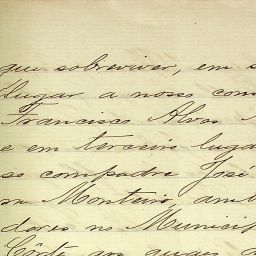 que sobreviver, em s
lugar a nosso com
Francisco Alves
e em terceiro luga
so compadre José
Monteiro, am
dores no Municip
Côrte